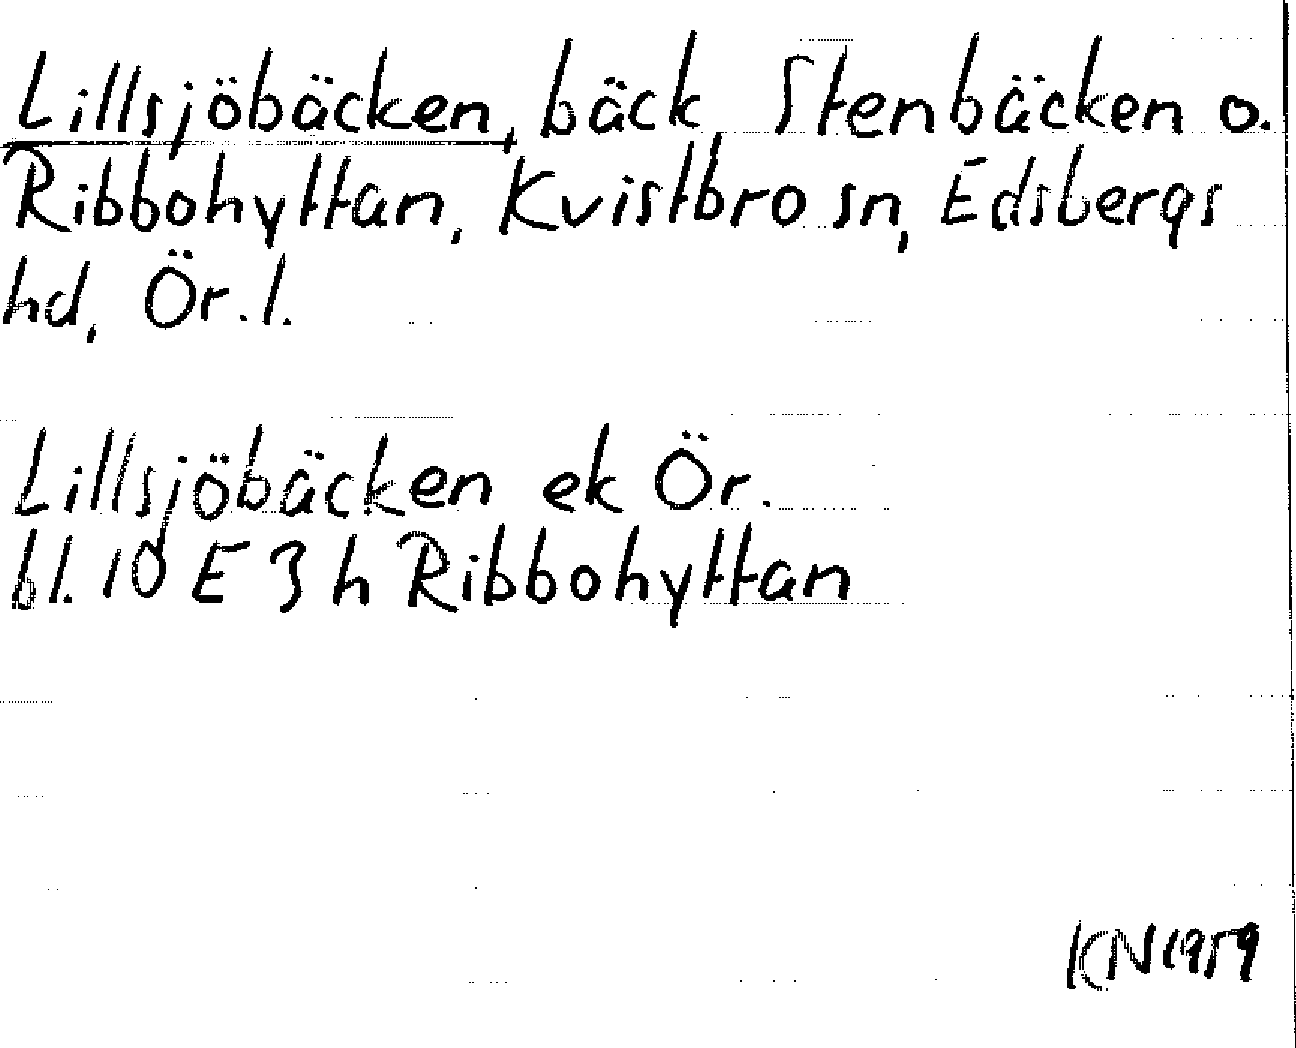 Lillsjöbäcken, bäck, Stenbäcken o.
Ribbohyttan, Kvistbro sn, Edsbergs
hd, Ör. l.
Lillsjöbäcken ek Ör.
bl. 10 E 3 h Ribbohyttan
KN 1959